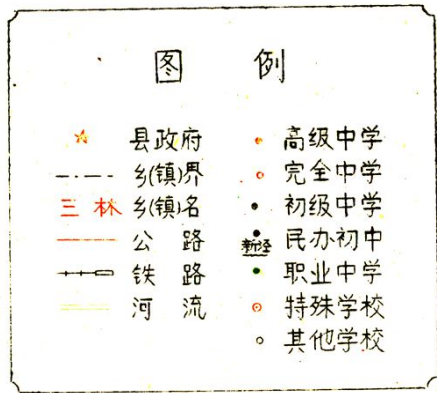 图 例
县政府
乡(镇)界
三林 乡(镇)名
公 路
铁 路
河 流
高级中学
完全中学
初级中学
新泾 民办初中
职业中学
特殊学校
其他学校